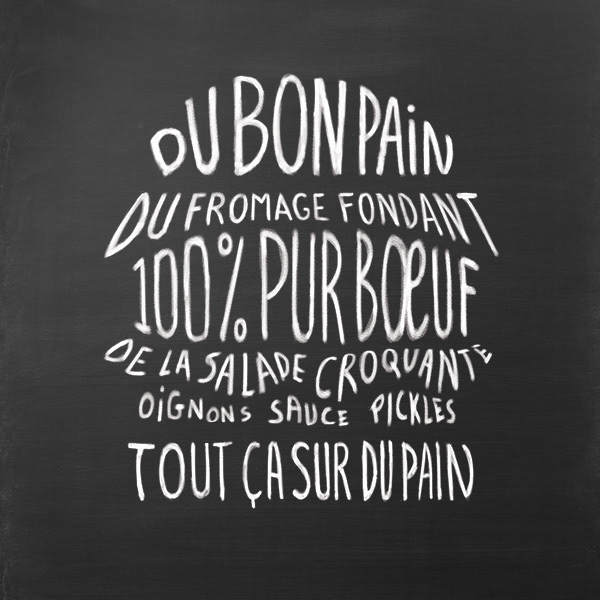 DU BON PAiN
DU FROMAGE FONDANT
100% PUR BŒUF
DE LA SALADE CROQUANTE
OiGNONS SAUCE PICKLES
TOUT ÇA SUR DU PAIN